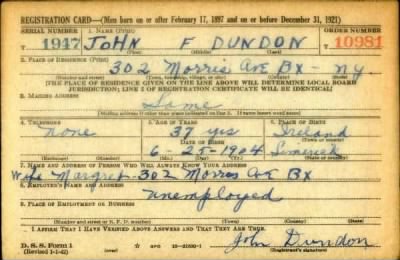 REGISTRATION CARD—(Men born on or after February 17, 1897 and on or before December 31, 1921)
SERIAL NUMBER 1. NAME (Print) ORDER NUMBER
1947 JOHN F DUNDON 10981
(First) (Middle) (Last)
2. PLACE OF RESIDENCE (Print)
302 Morris Ave Bx - ny.
(Number and street) (Town, township, village, or city) (County) (State)
[THE PLACE OF RESIDENCE GIVEN ON THE LINE ABOVE WILL DETERMINE LOCAL BOARD
JURISDICTION; LINE 2 OF REGISTRATION CERTIFICATE WILL BE IDENTICAL]
3. MAILING ADDRESS
Same
[Mailing address if other than place indicated on line 2. If same insert word same]
4. TELEPHONE 5. AGE IN YEARS 6. PLACE OF BIRTH
none 37 yrs Ireland
DATE OF BIRTH (Town or county)
6-25-1904 Limerick
(Exchange) (Number) (Mo.) (Day) (Yr.) (State or country)
7. NAME AND ADDRESS OF PERSON WHO WILL ALWAYS KNOW YOUR ADDRESS
Wife Margret-302 Morris Ave Bx
8. EMPLOYER'S NAME AND ADDRESS
unemployed
9. PLACE OF EMPLOYMENT OR BUSINESS
(Number and street or R. F. D. number) (Town) (County) (State)
I AFFIRM THAT I HAVE VERIFIED ABOVE ANSWERS AND THAT THEY ARE TRUE.
D. S. S. Form 1
(Revised 1-1-42) GPO John Dundon